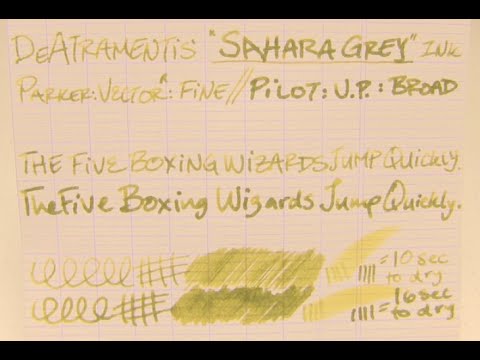 DeAtramentis "SAHARA GREY" INK
PARKER: VECTOR": FINE // PILOT: V.P.: BROAD
THE FIVE BOXING WIZARDS JUMP QUICKLY.
The Five Boxing Wizards Jump Quickly.
= 10 sec to dry
= 16 sec to dry